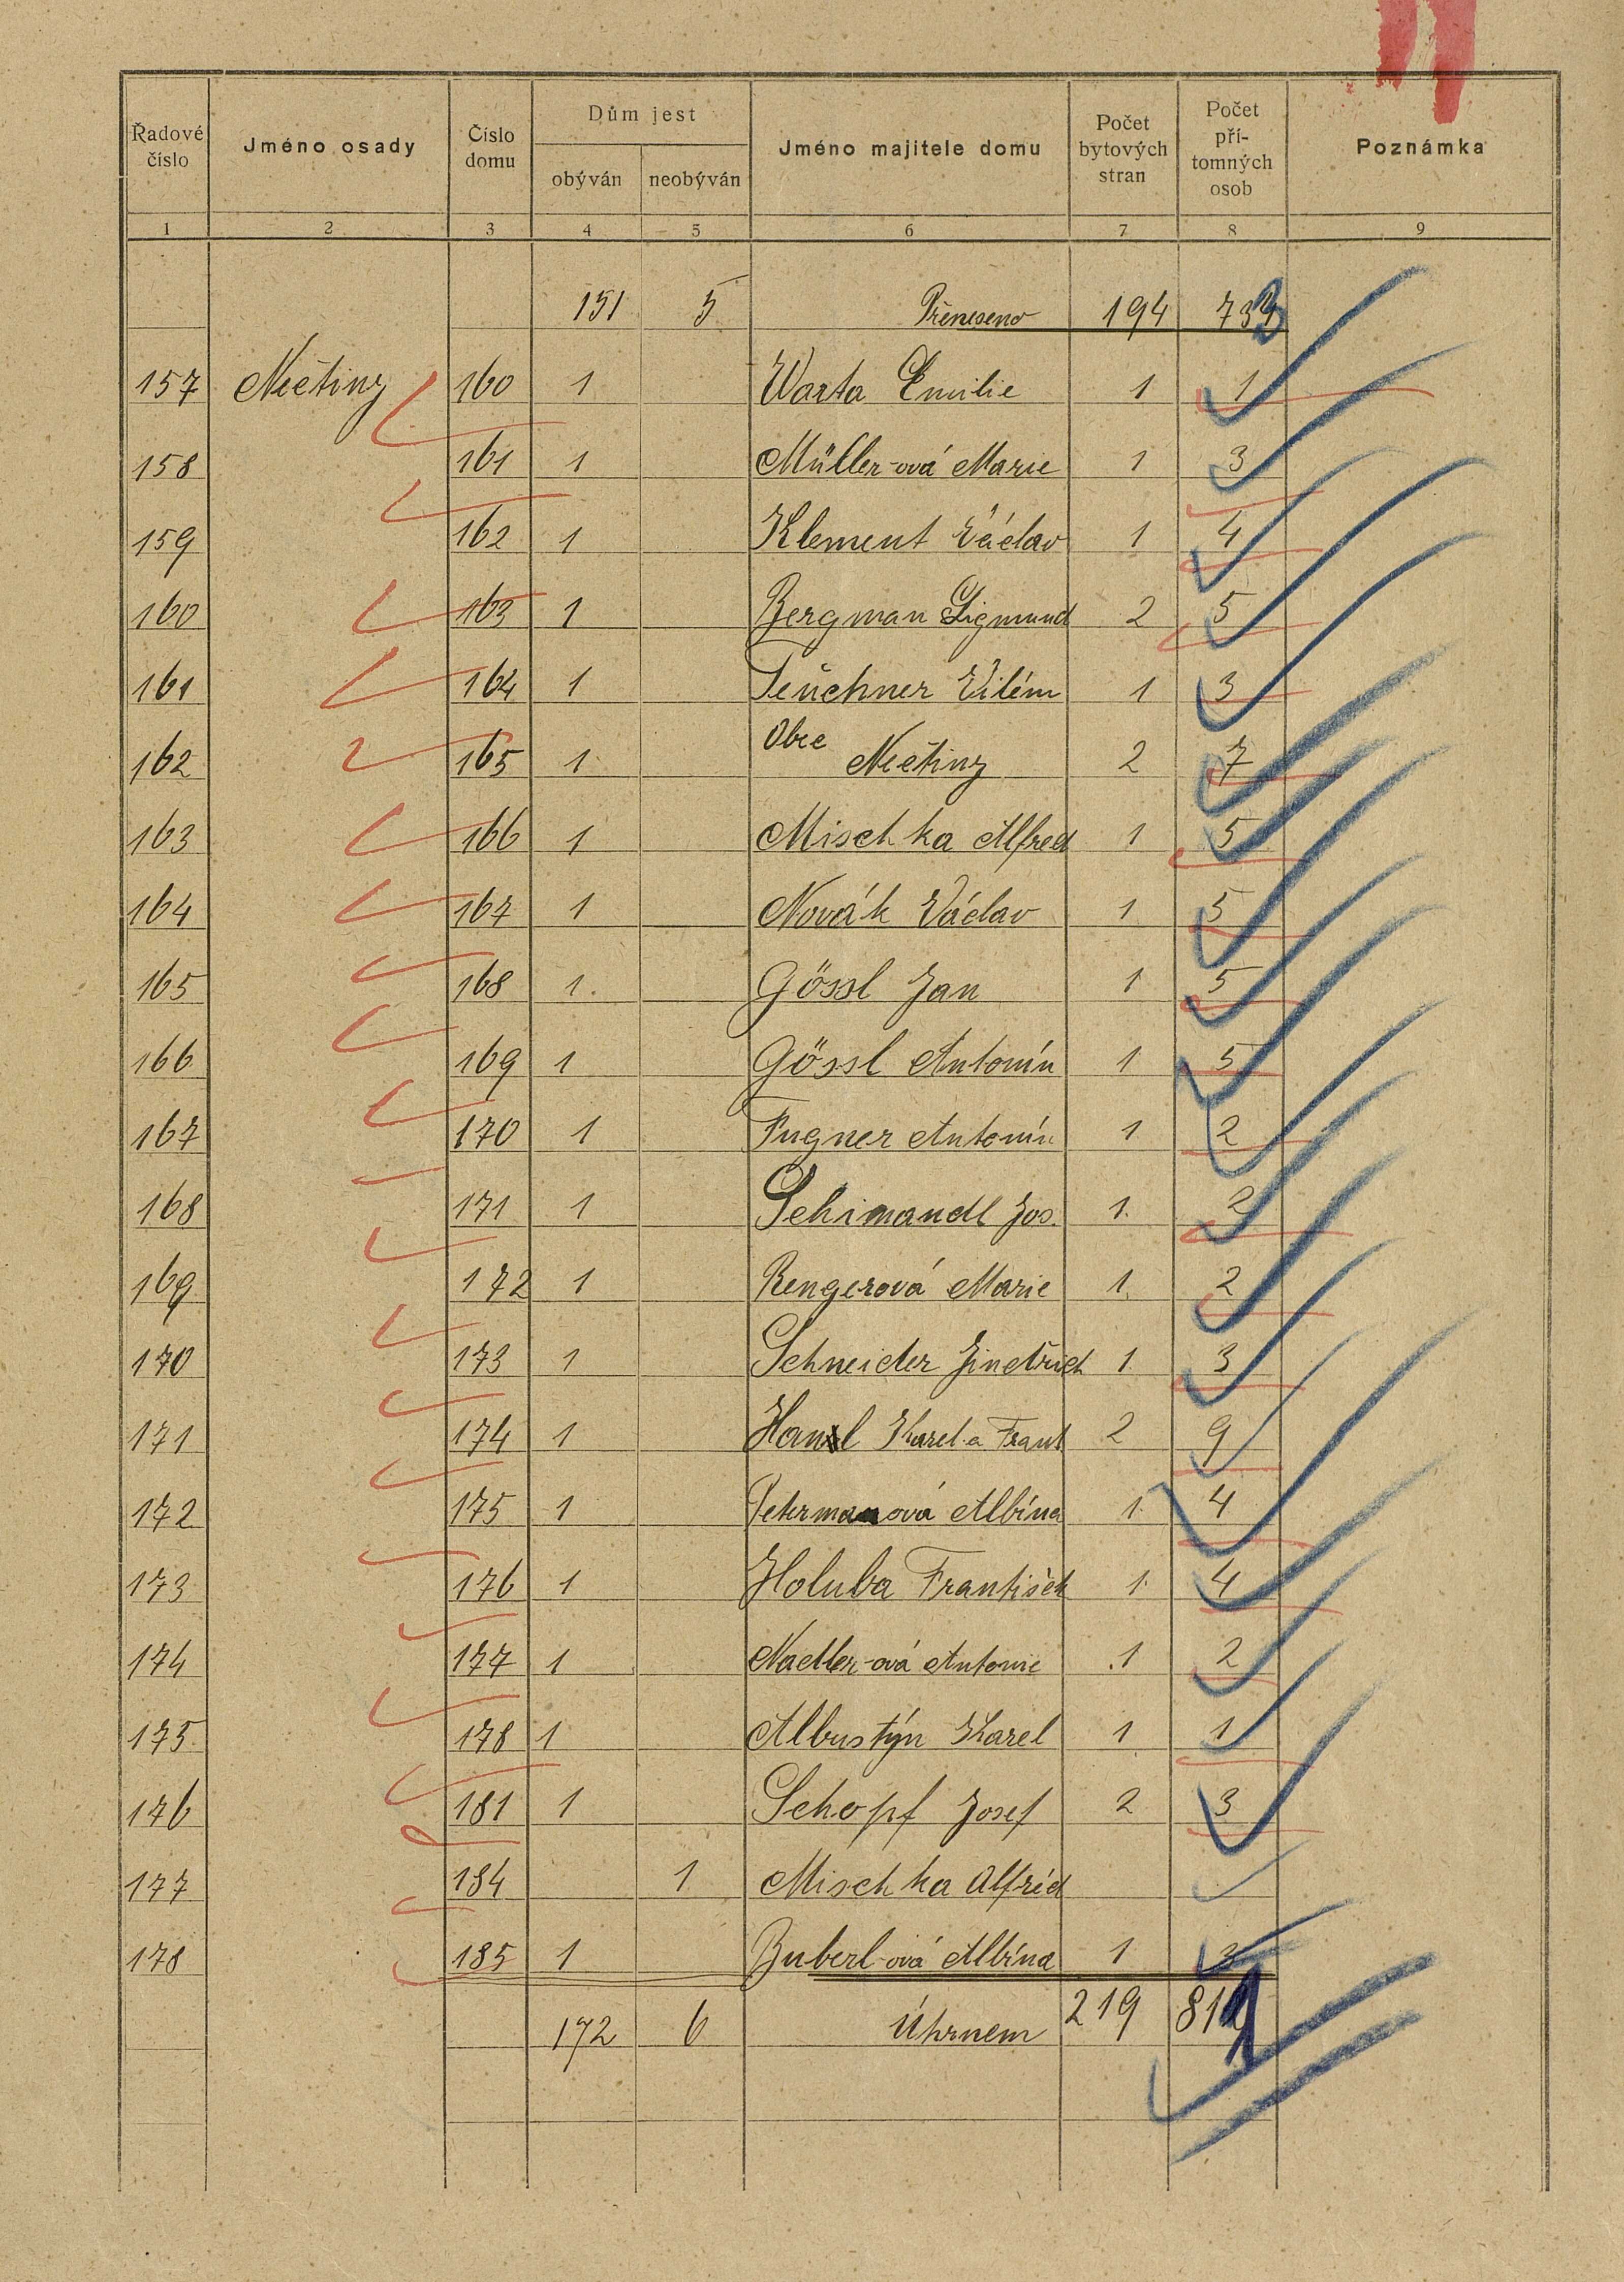 Řadové číslo | Jméno osady | Číslo domu | Dům jest | Jméno majitele domu | Počet bytových stran | Počet pří-tomných osob | Poznámka
obýván | neobýván
1 | 2 | 3 | 4 | 5 | 6 | 7 | 8 | 9
151 | 5 | Přeneseno | 194 | 733
157 | Nečtiny | 160 | 1 | Warta Emilie | 1 | 1
158 | 161 | 1 | Müller-ová Marie | 1 | 3
159 | 162 | 1 | Klement Václav | 1 | 4
160 | 163 | 1 | Bergman Sigmund | 2 | 5
161 | 164 | 1 | Teuchner Vilém | 1 | 3
162 | 165 | 1 | Obce Nečtiny | 2 | 7
163 | 166 | 1 | Mischka Alfred | 1 | 5
164 | 167 | 1 | Novák Václav | 1 | 5
165 | 168 | 1. | Gössl Jan | 1 | 5
166 | 169 | 1 | Gössl Antonín | 1 | 5
167 | 170 | 1 | Fugner Antonín | 1 | 2
168 | 171 | 1 | Schimandl Jos. | 1. | 2
169 | 172 | 1 | Rengerová Marie | 1. | 2
170 | 173 | 1 | Schneider Jindřich | 1 | 3
171 | 174 | 1 | Hansl Karel a Frant | 2 | 9
172 | 175 | 1 | Petermanová Albína | 1. | 4
173 | 176 | 1 | Holuba František | 1. | 4
174 | 177 | 1 | Nadler-ová Antonie | 1 | 2
175 | 178 | 1 | Albustýn Karel | 1 | 1
176 | 181 | 1 | Schopf Josef | 2 | 3
177 | 184 | 1 | Mischka Alfréd
178 | 185 | 1 | Zuberl-ová Albína | 1 | 3
172 | 6 | Úhrnem | 219 | 811